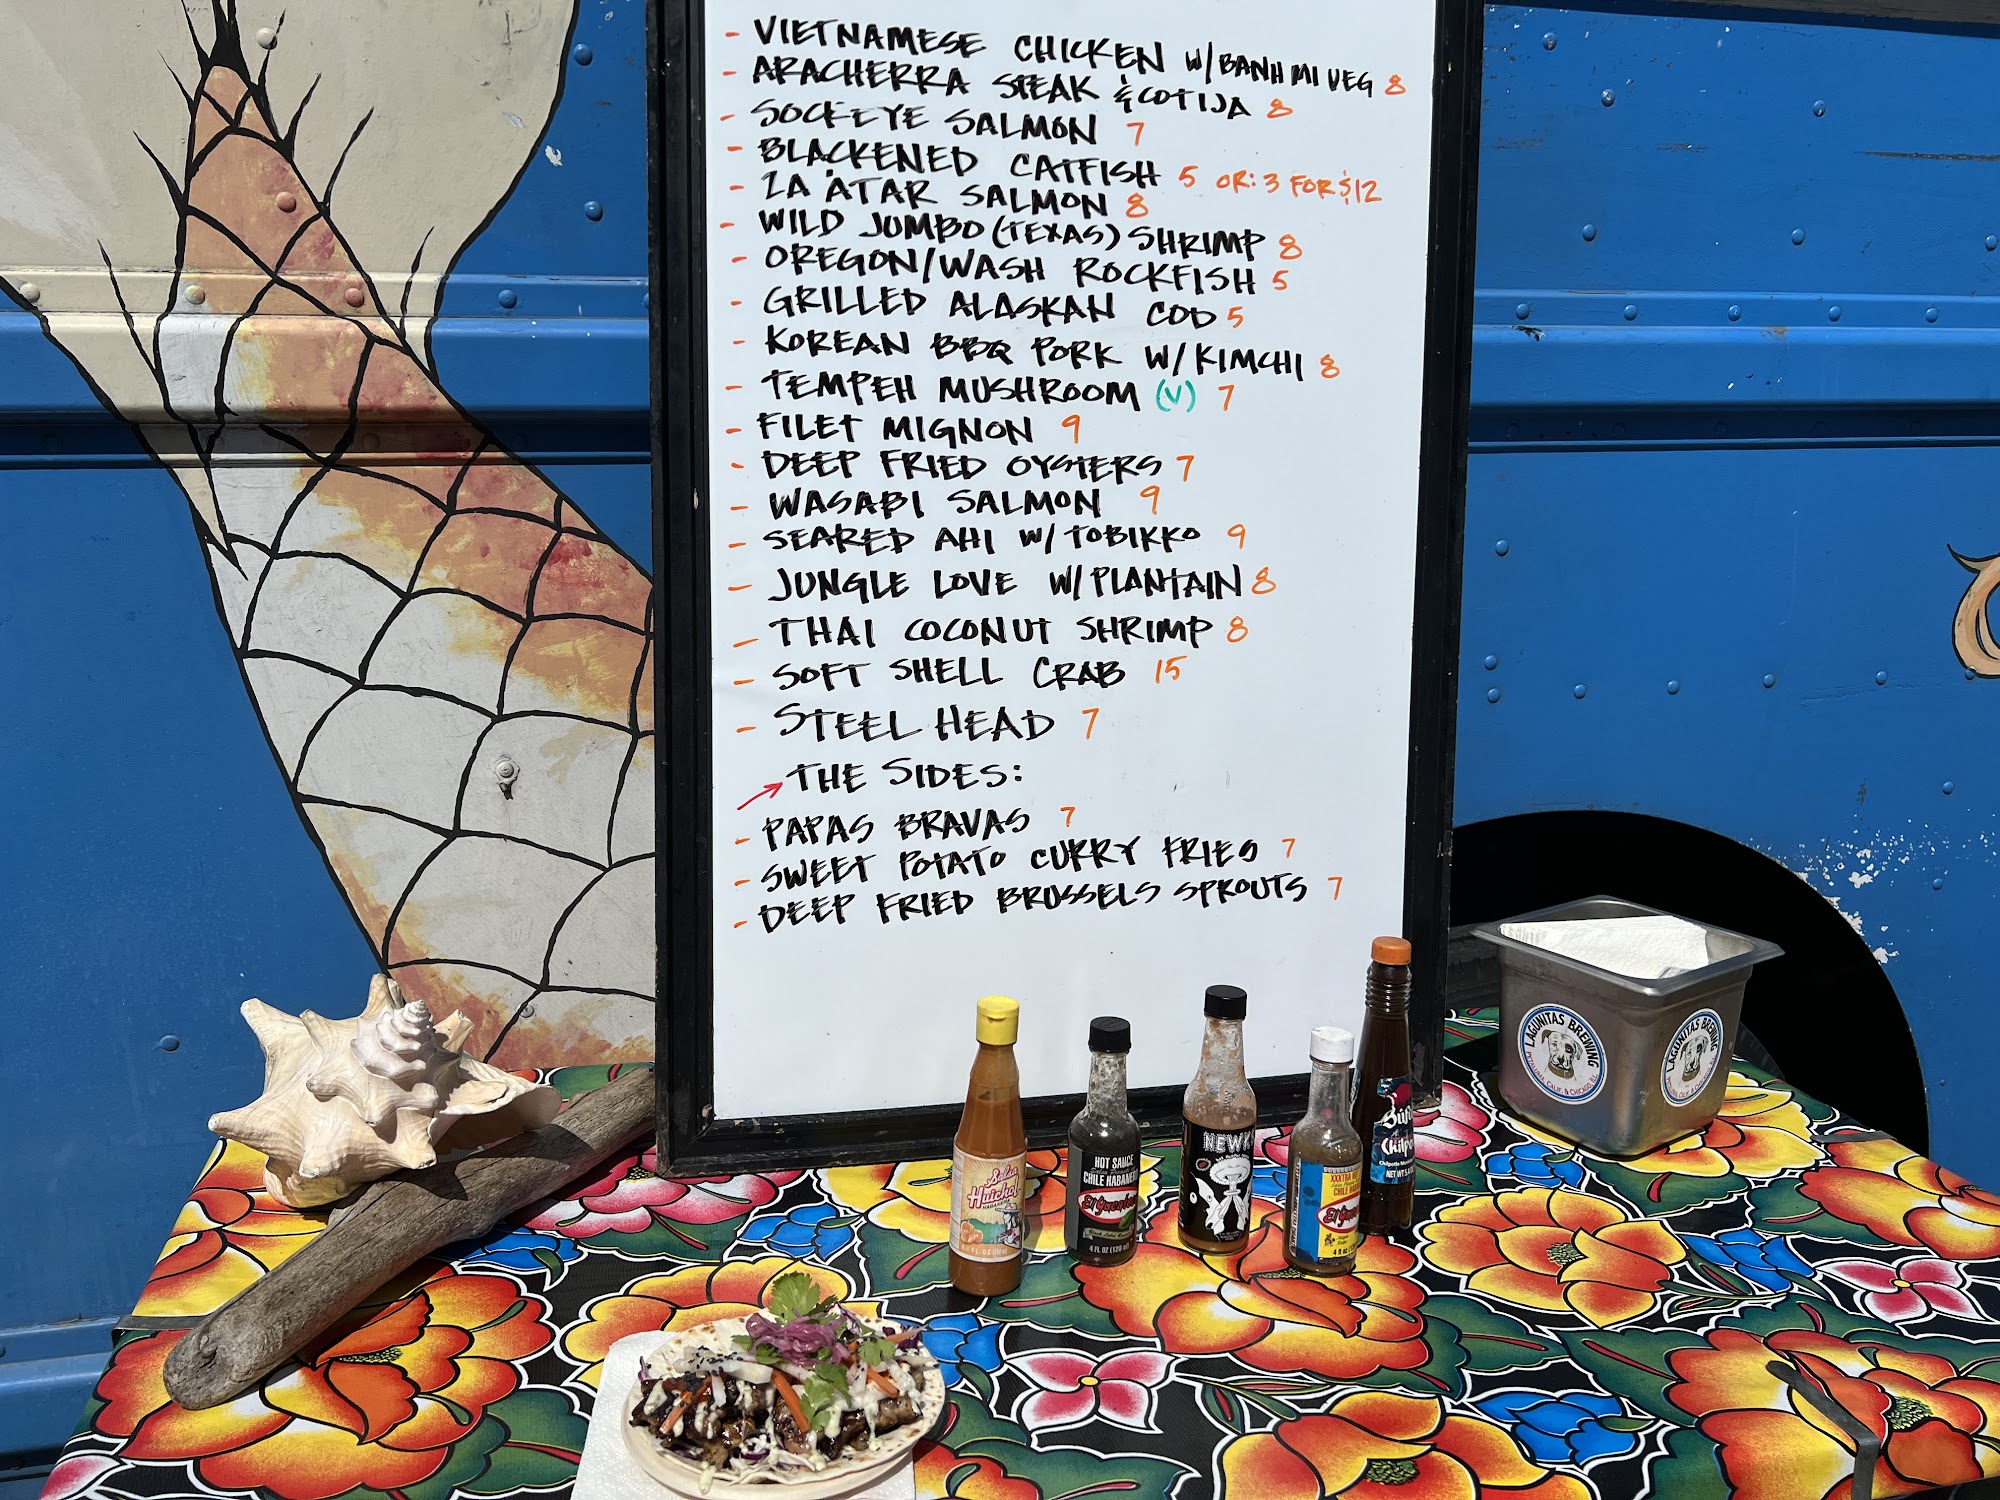 - VIETNAMESE CHICKEN W/BANH MI VEG 8
- ARACHERRA STEAK & COTIJA 8
- SOCKEYE SALMON 7
- BLACKENED CATFISH 5 OR: 3 FOR $12
- ZA'ATAR SALMON 8
- WILD JUMBO (TEXAS) SHRIMP 8
- OREGON/WASH ROCKFISH 5
- GRILLED ALASKAN COD 5
- KOREAN BBQ PORK W/ KIMCHI 8
- TEMPEH MUSHROOM (V) 7
- FILET MIGNON 9
- DEEP FRIED OYSTERS 7
- WASABI SALMON 9
- SEARED AHI W/ TOBIKKO 9
- JUNGLE LOVE W/ PLANTAIN 8
- THAI COCONUT SHRIMP 8
- SOFT SHELL CRAB 15
- STEEL HEAD 7
THE SIDES:
- PAPAS BRAVAS 7
- SWEET POTATO CURRY FRIES 7
- DEEP FRIED BRUSSELS SPROUTS 7
LAGUNITAS BREWING
PETALUMA, CALIF. & CHICAGO, ILL.
LAGUNITAS BREWING
Salsa
Huichol
HABANERO
HOT SAUCE
CHILE HABANERO
El Yucateco
4 FL OZ (120 ml)
NEWK
XXXTRA HOT
CHILE
El Yuca
4 fl oz
Búfa
Chipo
NET WT 5.